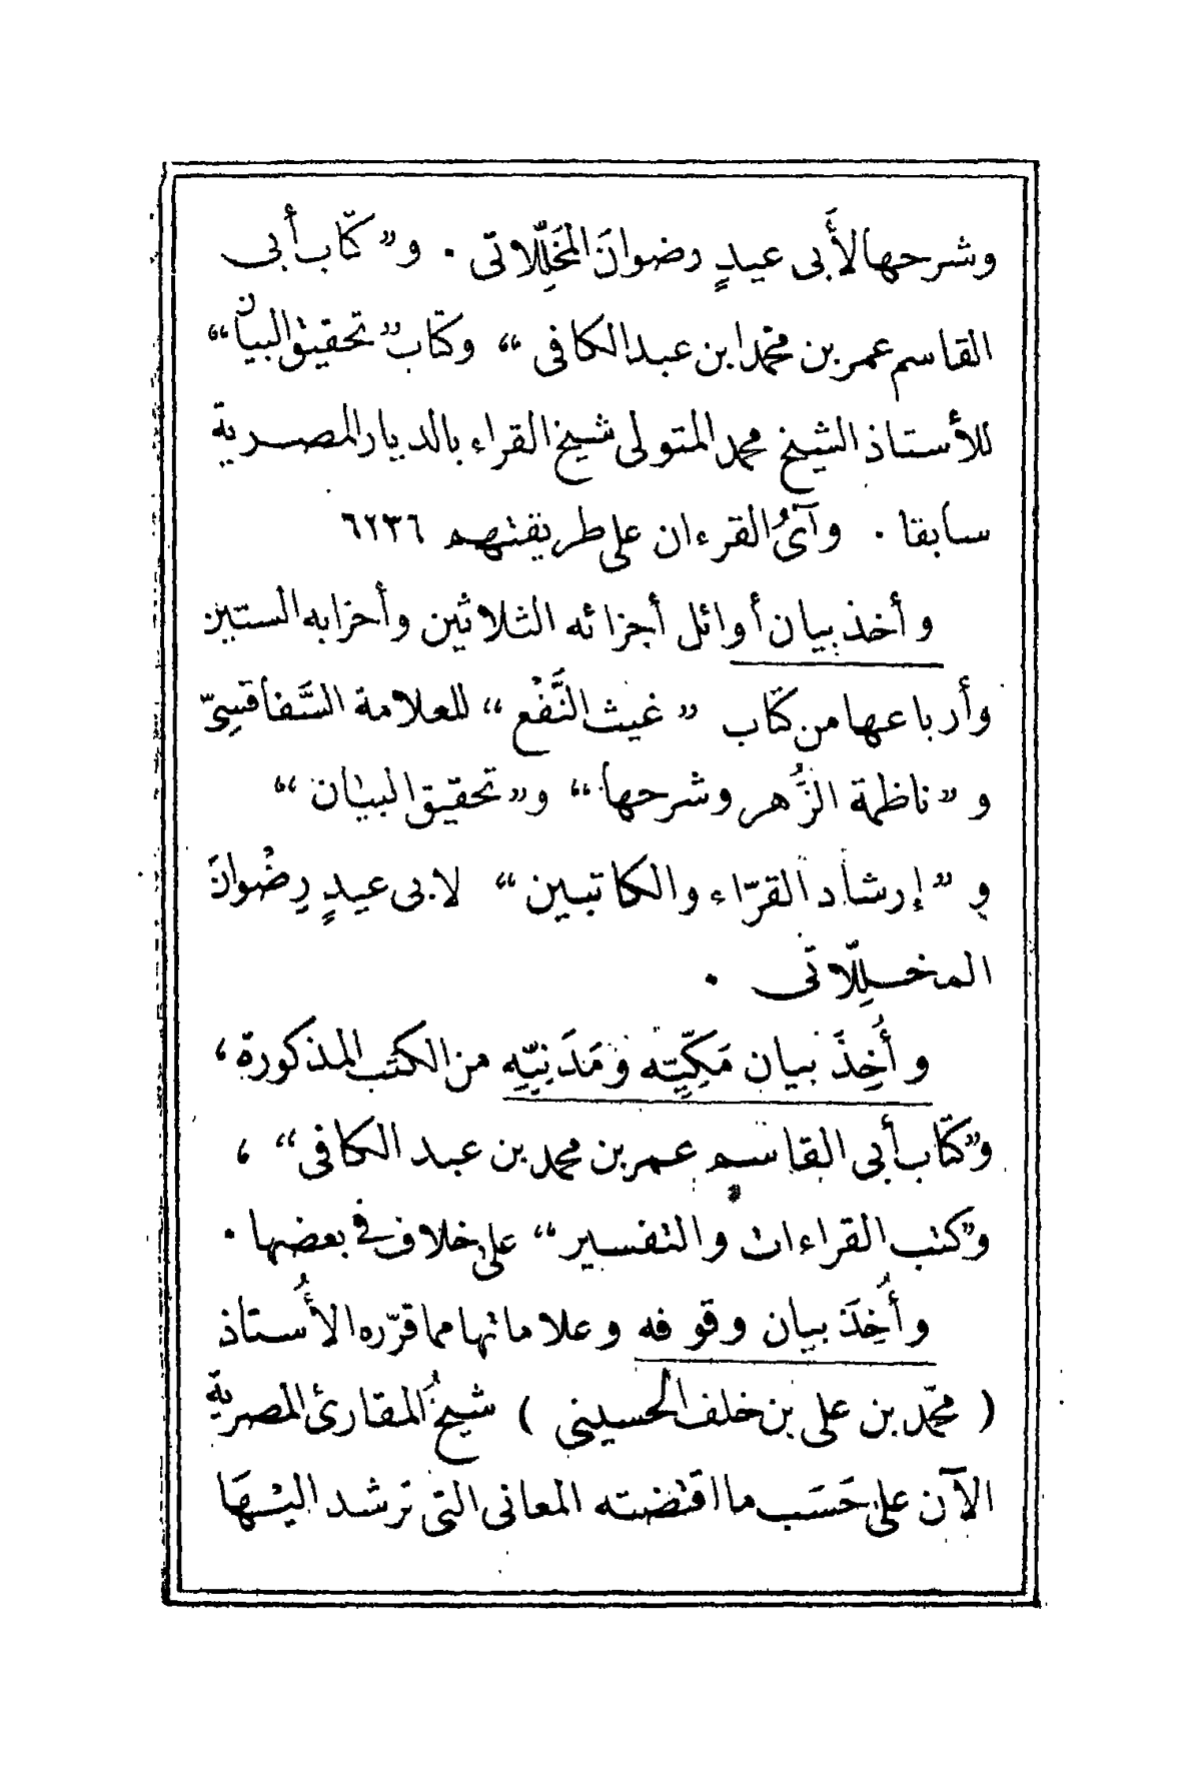 وشرحها لأَبى عيدٍ رضوانَ المخَلِّلاتى . و” كتاب أبى
القاسم عمر بن محمّد ابن عبد الكافى “ وكتاب” تحقيق البيان “
للأستاذ الشيخ محمد المتولى شيخ القراء بالديار المصرية
سابقا . وآىُ القرءان على طريقتهم ٦٢٣٦
وأخذ بيان أوائل أجزائه الثلاثين وأحزابه الستين
وأرباعها من كتاب ” غيث النَّفْع “ للعلامة السَّفاقسِىّ
و ” ناظمة الزُّهر وشرحها “ و” تحقيق البيان “
و ” إرشاد القرّاء والكاتبين “ لابى عيدٍ رِضْوانَ
المخلِّلاتى .
وأُخِذَ بيان مَكِّيّه ومَدَنِيّه من الكتب المذكورة ،
و” كتاب أبى القاسم عمر بن محمد بن عبد الكافى “ ،
و” كتب القراءات والتفسير “ على خلاف فى بعضها .
وأُخِذَ بيان وقوفه وعلاماتها مما قرّره الأُستاذ
( محمّد بن على بن خلف الحسينى ) شيخُ المقارئ المصرية
الآن على حَسَب ما اقتضته المعانى التى ترشد اليْهَا